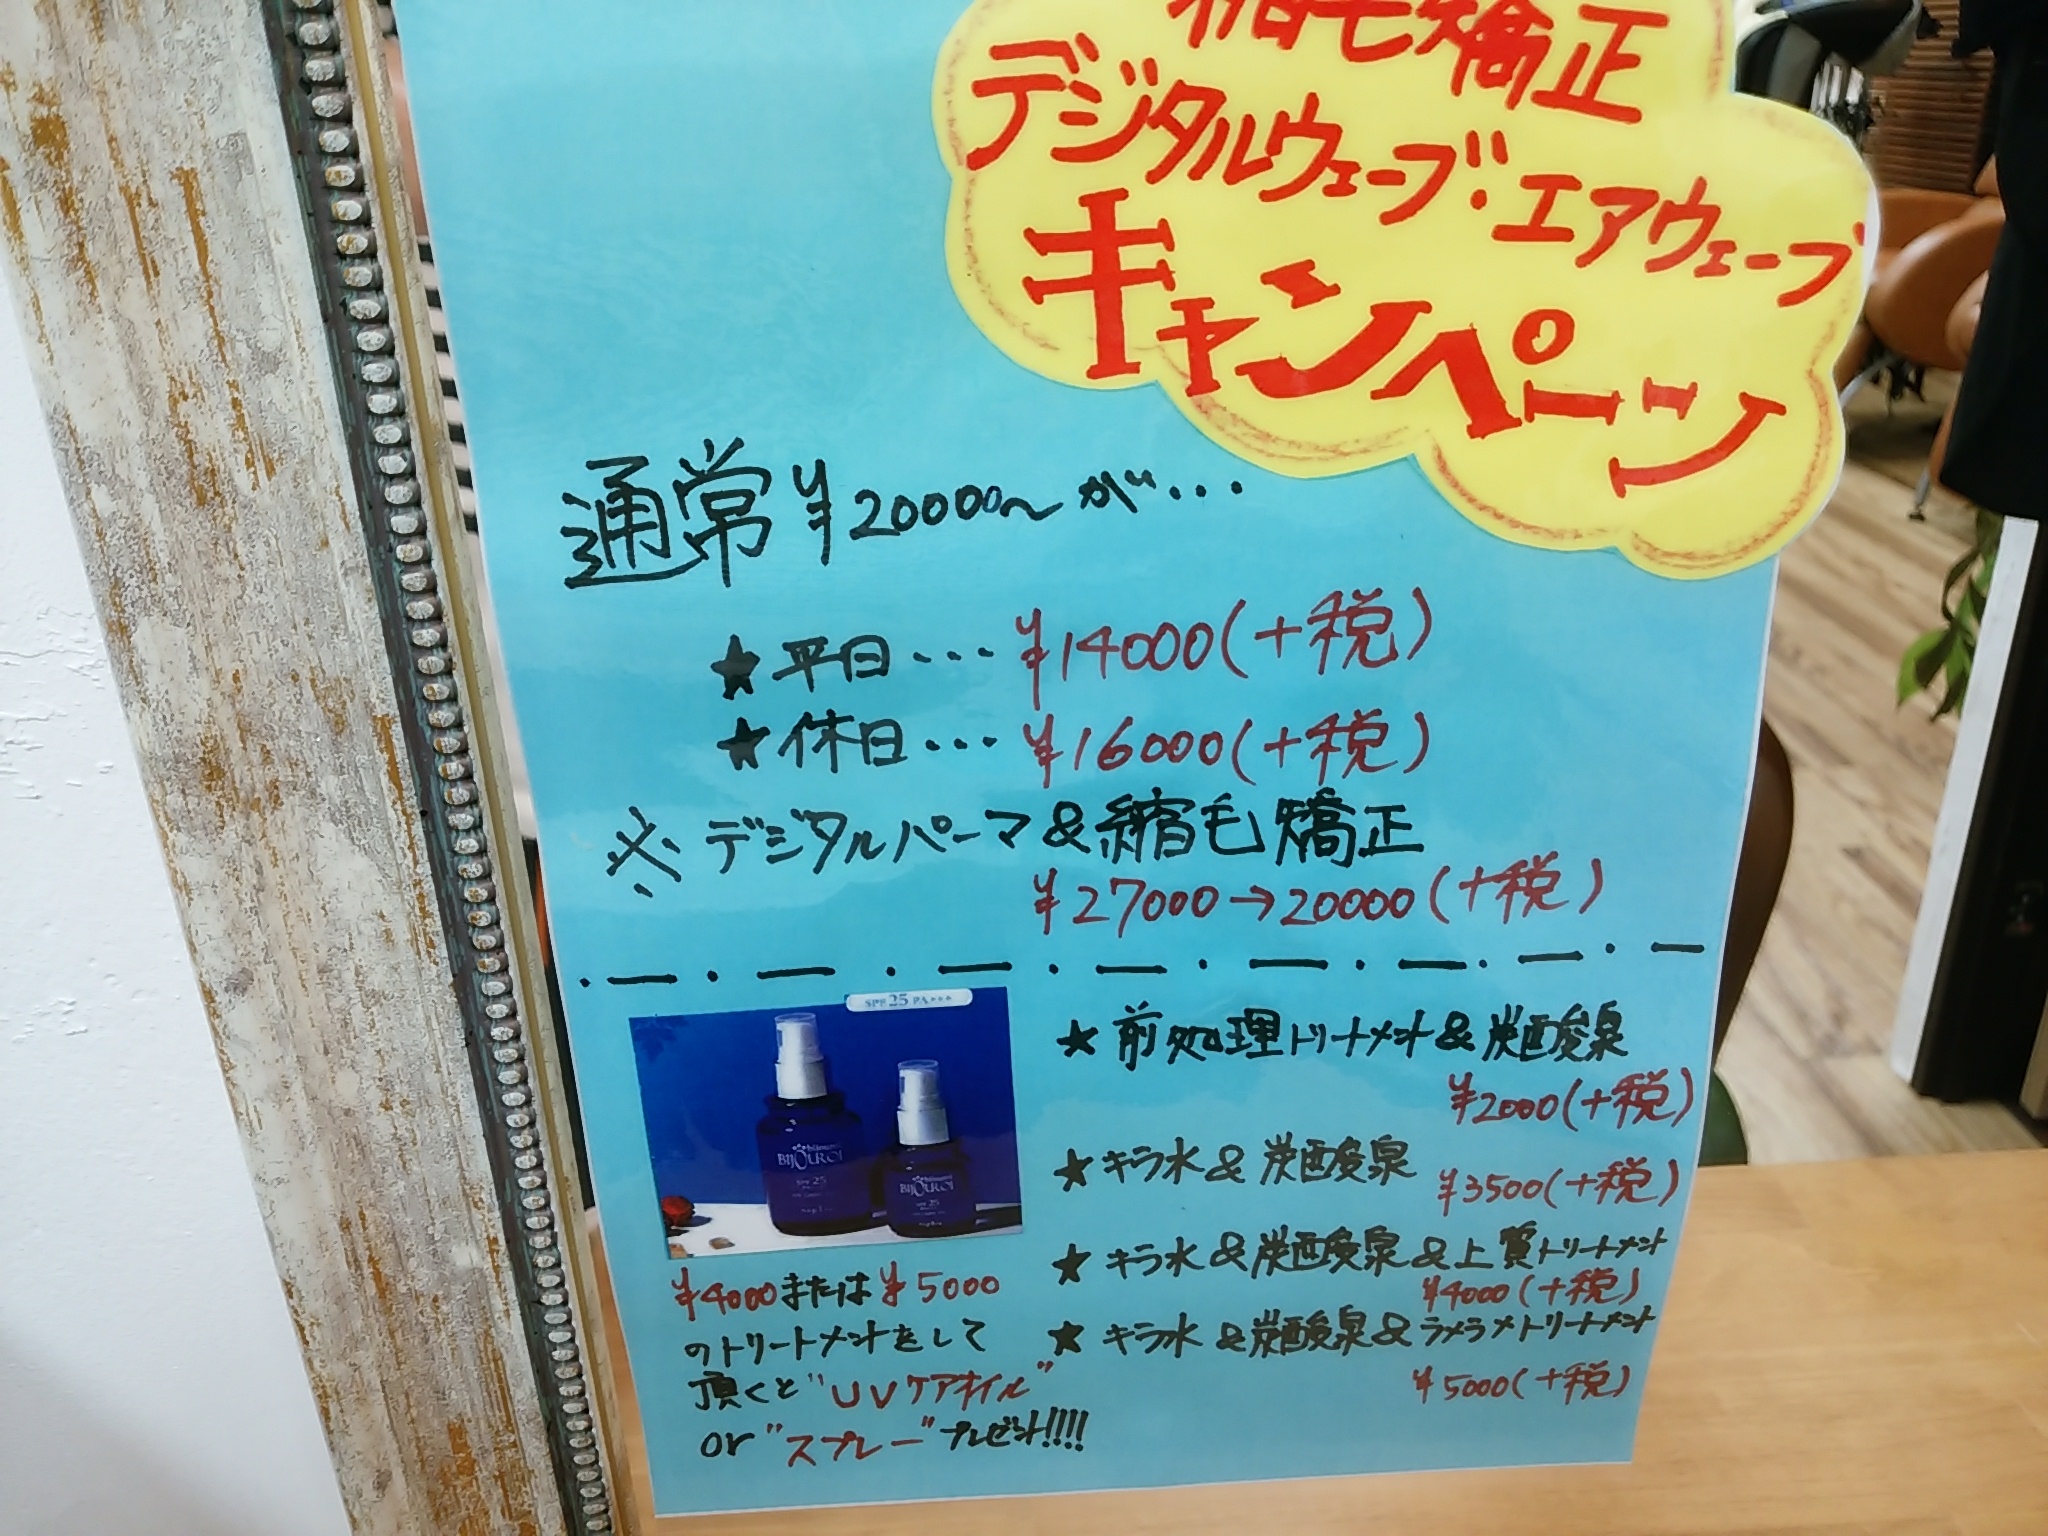 縮毛矯正
デジタルウェーブ・エアウェーブ
キャンペーン
通常¥20000〜が…
★平日…¥14000(+税)
★休日…¥16000(+税)
※デジタルパーマ&縮毛矯正
¥27000→20000(+税)
SPF 25 PA+++
BIJOUROI
SPF 25
napla
BIJOUROI
SPF 25
napla
¥4000または¥5000
のトリートメントをして
頂くと"UVケアオイル"
or"スプレー"プレゼント!!!!
★前処理トリートメント&炭酸泉
¥2000(+税)
★キラ水&炭酸泉
¥3500(+税)
★キラ水&炭酸泉&上質トリートメント
¥4000(+税)
★キラ水&炭酸泉&ラメラメトリートメント
¥5000(+税)